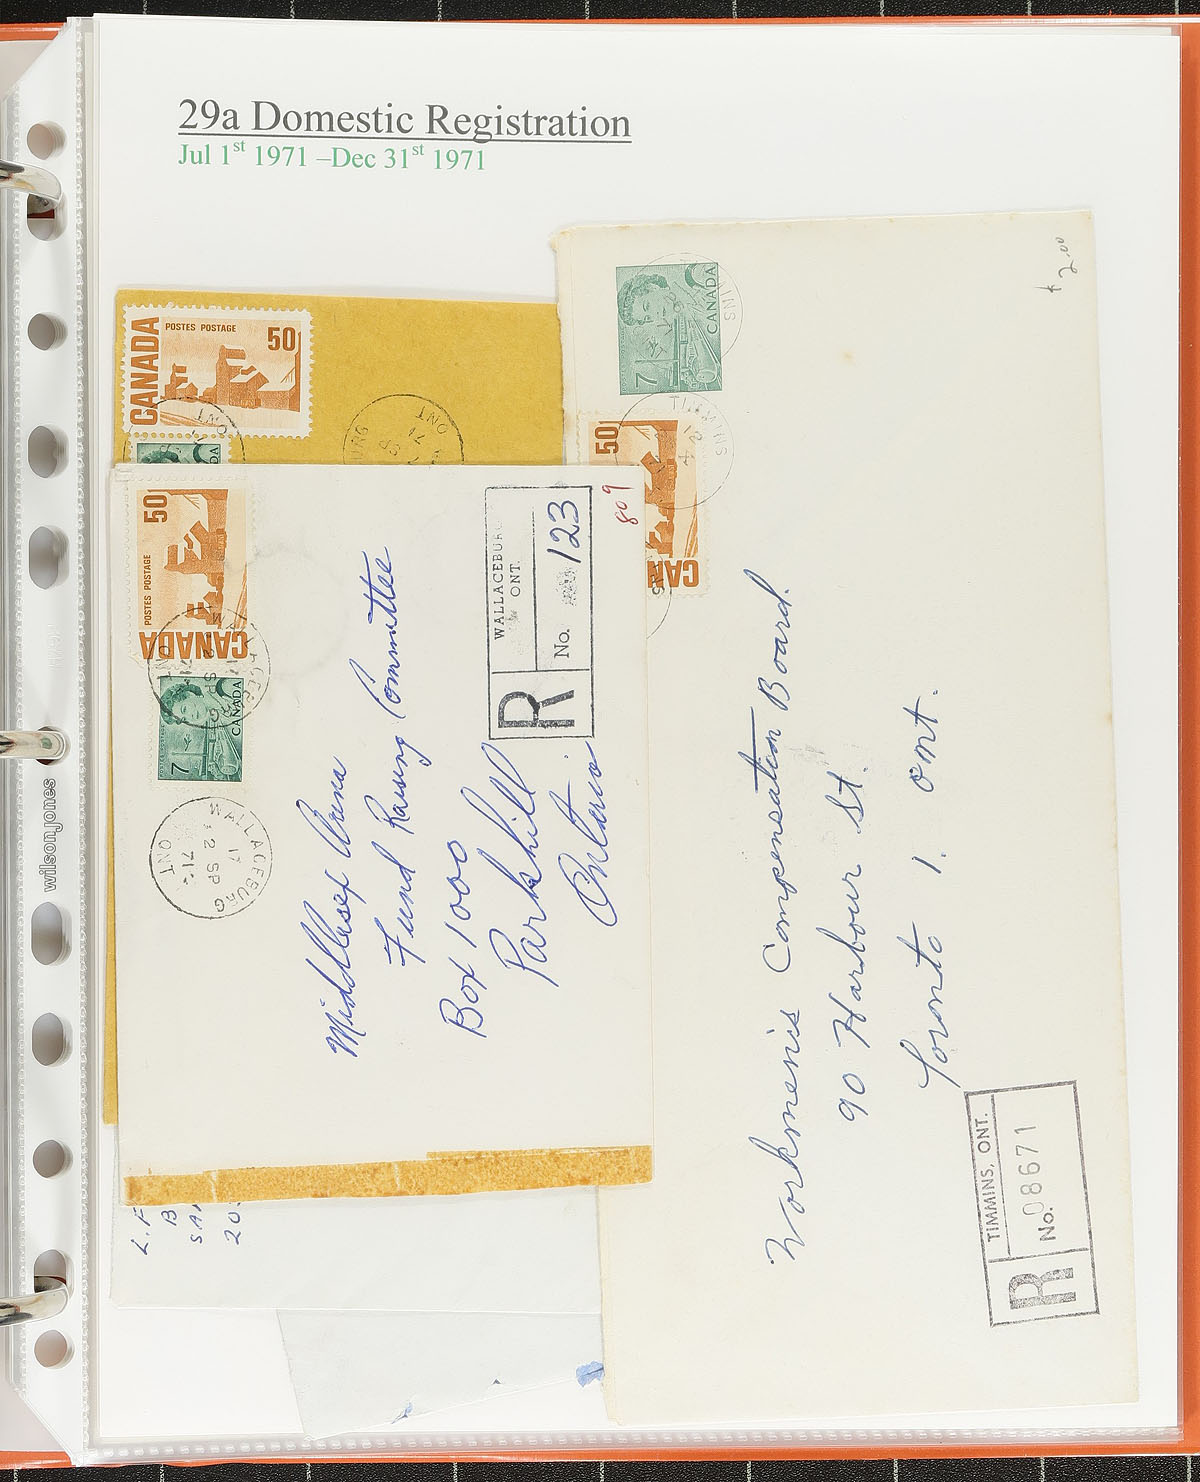 29a Domestic Registration
Jul 1st 1971 –Dec 31st 1971
CANADA
POSTES POSTAGE
50
ONT
CANADA
POSTES POSTAGE
50
CANADA
7
WALLACEBURG
17
2 SP
71
ONT
Middlesex Arena
Fund Raising Committee
Box 1000
Parkhill
Ontario
R
WALLACEBURG
ONT.
No. 123
809
CANADA
7
TIMMINS
50
CANADA
$ 2.00
Workmen's Compensation Board.
90 Harbour St.
Toronto 1. Ont.
R
TIMMINS, ONT.
No. 08671
wilsonjones